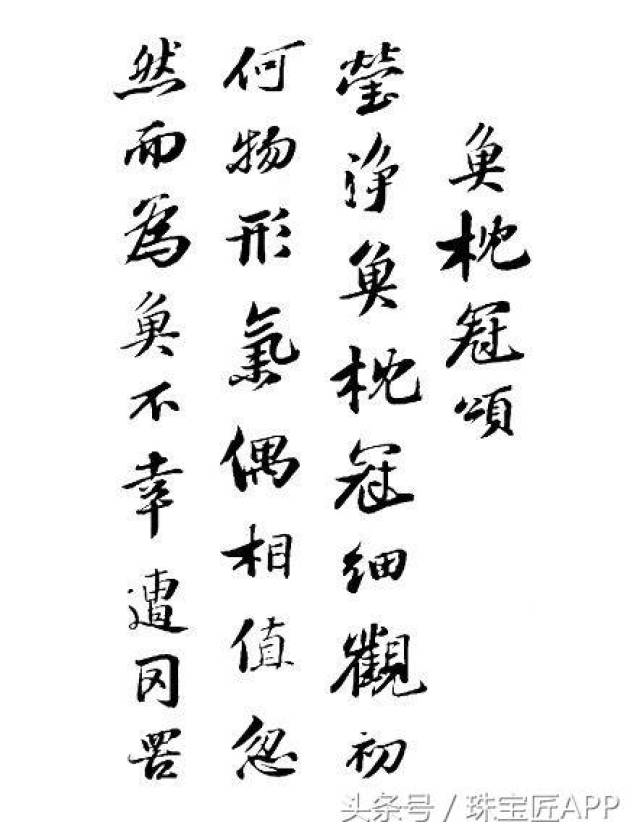 魚枕冠頌
瑩淨魚枕冠細觀初
何物形氣偶相值忽
然而為魚不幸遭网罟
头条号 / 珠宝匠APP